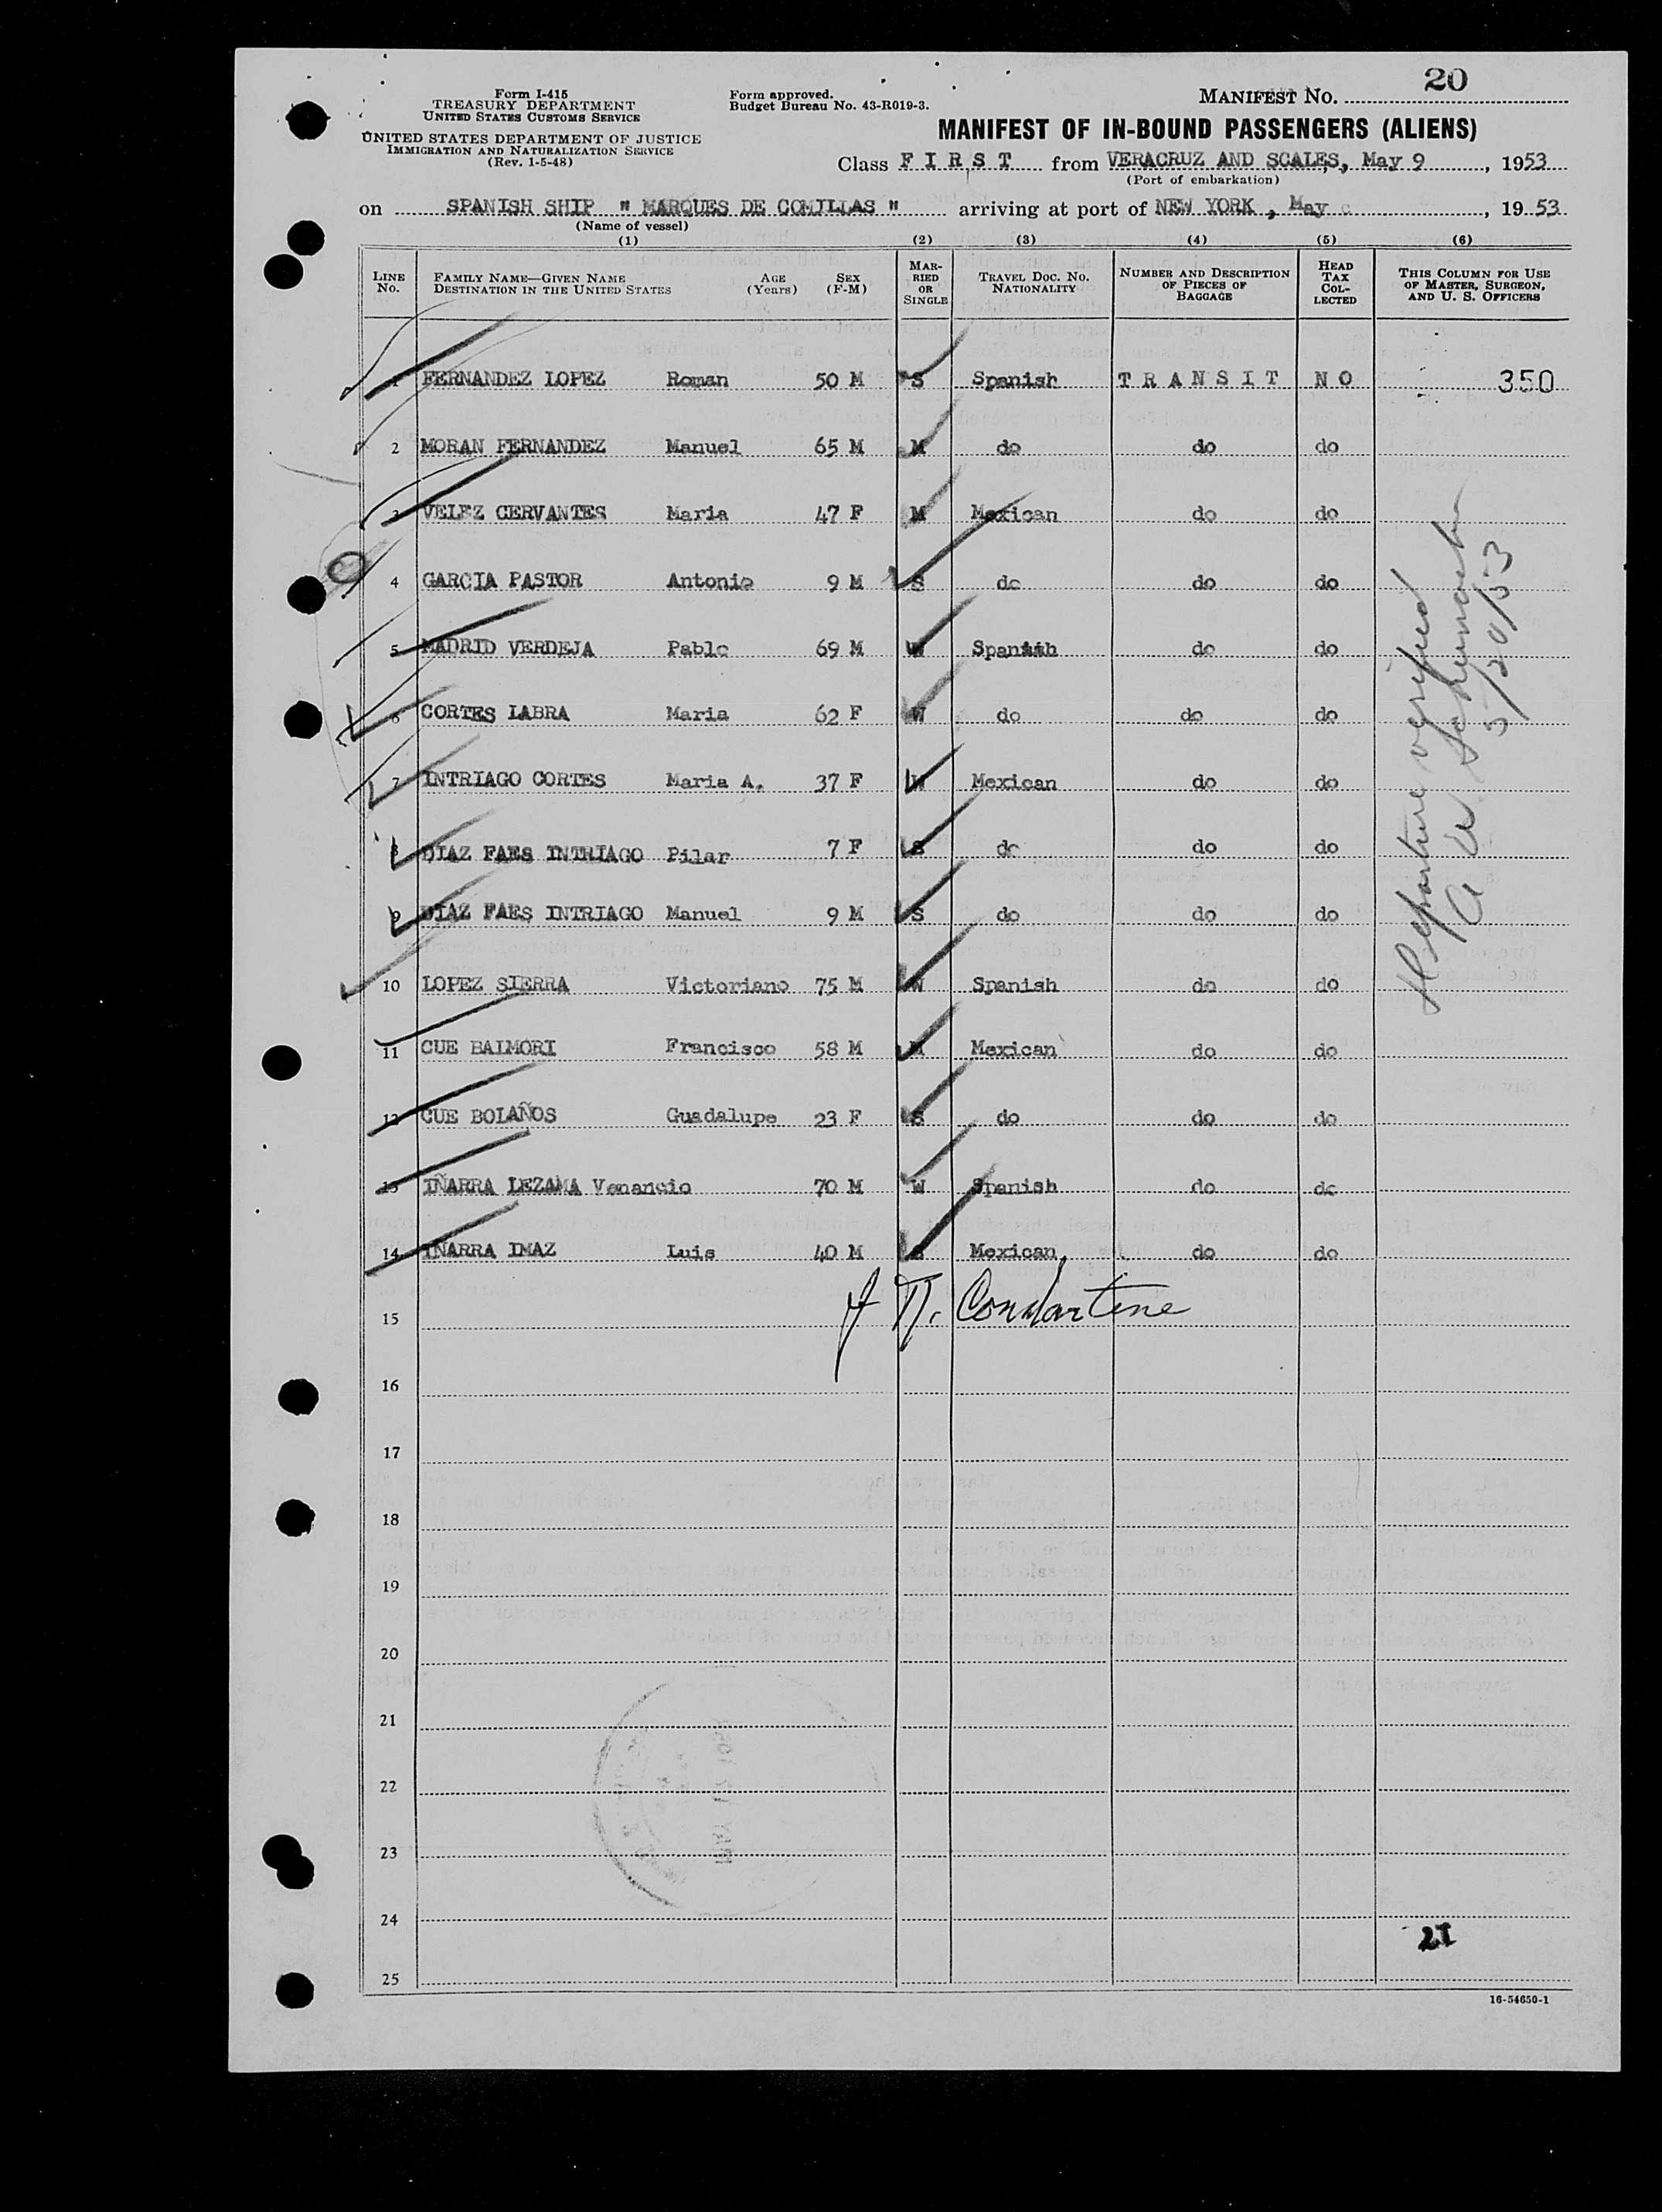 Form I-415
TREASURY DEPARTMENT
UNITED STATES CUSTOMS SERVICE
UNITED STATES DEPARTMENT OF JUSTICE
IMMIGRATION AND NATURALIZATION SERVICE
(Rev. 1-5-48)
Form approved.
Budget Bureau No. 43-R019-3.
MANIFEST NO. 20
MANIFEST OF IN-BOUND PASSENGERS (ALIENS)
Class F I R S T from VERACRUZ AND SCALES, May 9, 1953
(Port of embarkation)
on SPANISH SHIP " MARQUES DE COMILLAS " arriving at port of NEW YORK, May, 1953
(Name of vessel)
(1) (2) (3) (4) (5) (6)
LINE No. FAMILY NAME—GIVEN NAME DESTINATION IN THE UNITED STATES AGE (Years) SEX (F-M) MARRIED OR SINGLE TRAVEL DOC. NO. NATIONALITY NUMBER AND DESCRIPTION OF PIECES OF BAGGAGE HEAD TAX COLLECTED THIS COLUMN FOR USE OF MASTER, SURGEON, AND U. S. OFFICERS
1 FERNANDEZ LOPEZ Roman 50 M S Spanish T R A N S I T N O 350
2 MORAN FERNANDEZ Manuel 65 M M do do do
3 VELEZ CERVANTES Maria 47 F M Mexican do do
4 GARCIA PASTOR Antonio 9 M S do do do
5 MADRID VERDEJA Pablo 69 M W Spanish do do
6 CORTES LABRA Maria 62 F W do do do
7 INTRIAGO CORTES Maria A. 37 F W Mexican do do
8 DIAZ FAES INTRIAGO Pilar 7 F S do do do
9 DIAZ FAES INTRIAGO Manuel 9 M S do do do
10 LOPEZ SIERRA Victoriano 75 M W Spanish do do
11 CUE BALMORI Francisco 58 M M Mexican do do
12 CUE BOLAÑOS Guadalupe 23 F S do do do
13 IÑARRA LEZAMA Venancio 70 M W Spanish do do
14 IÑARRA IMAZ Luis 40 M S Mexican. do do
Departure verified
5/20/53
15
16
17
18
19
20
21
22
23
24
21
25
16-54650-1